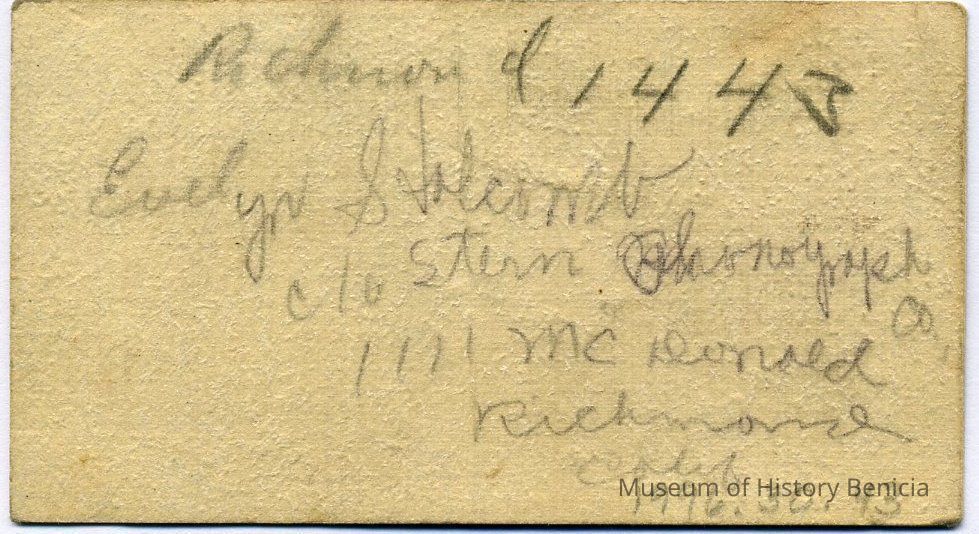 Richmond 1443
Evelyn S Holcomb
c/o Stern Phonograph
Co.
1111 McDonald
Richmond
Calif
Museum of History Benicia
1976.50.93